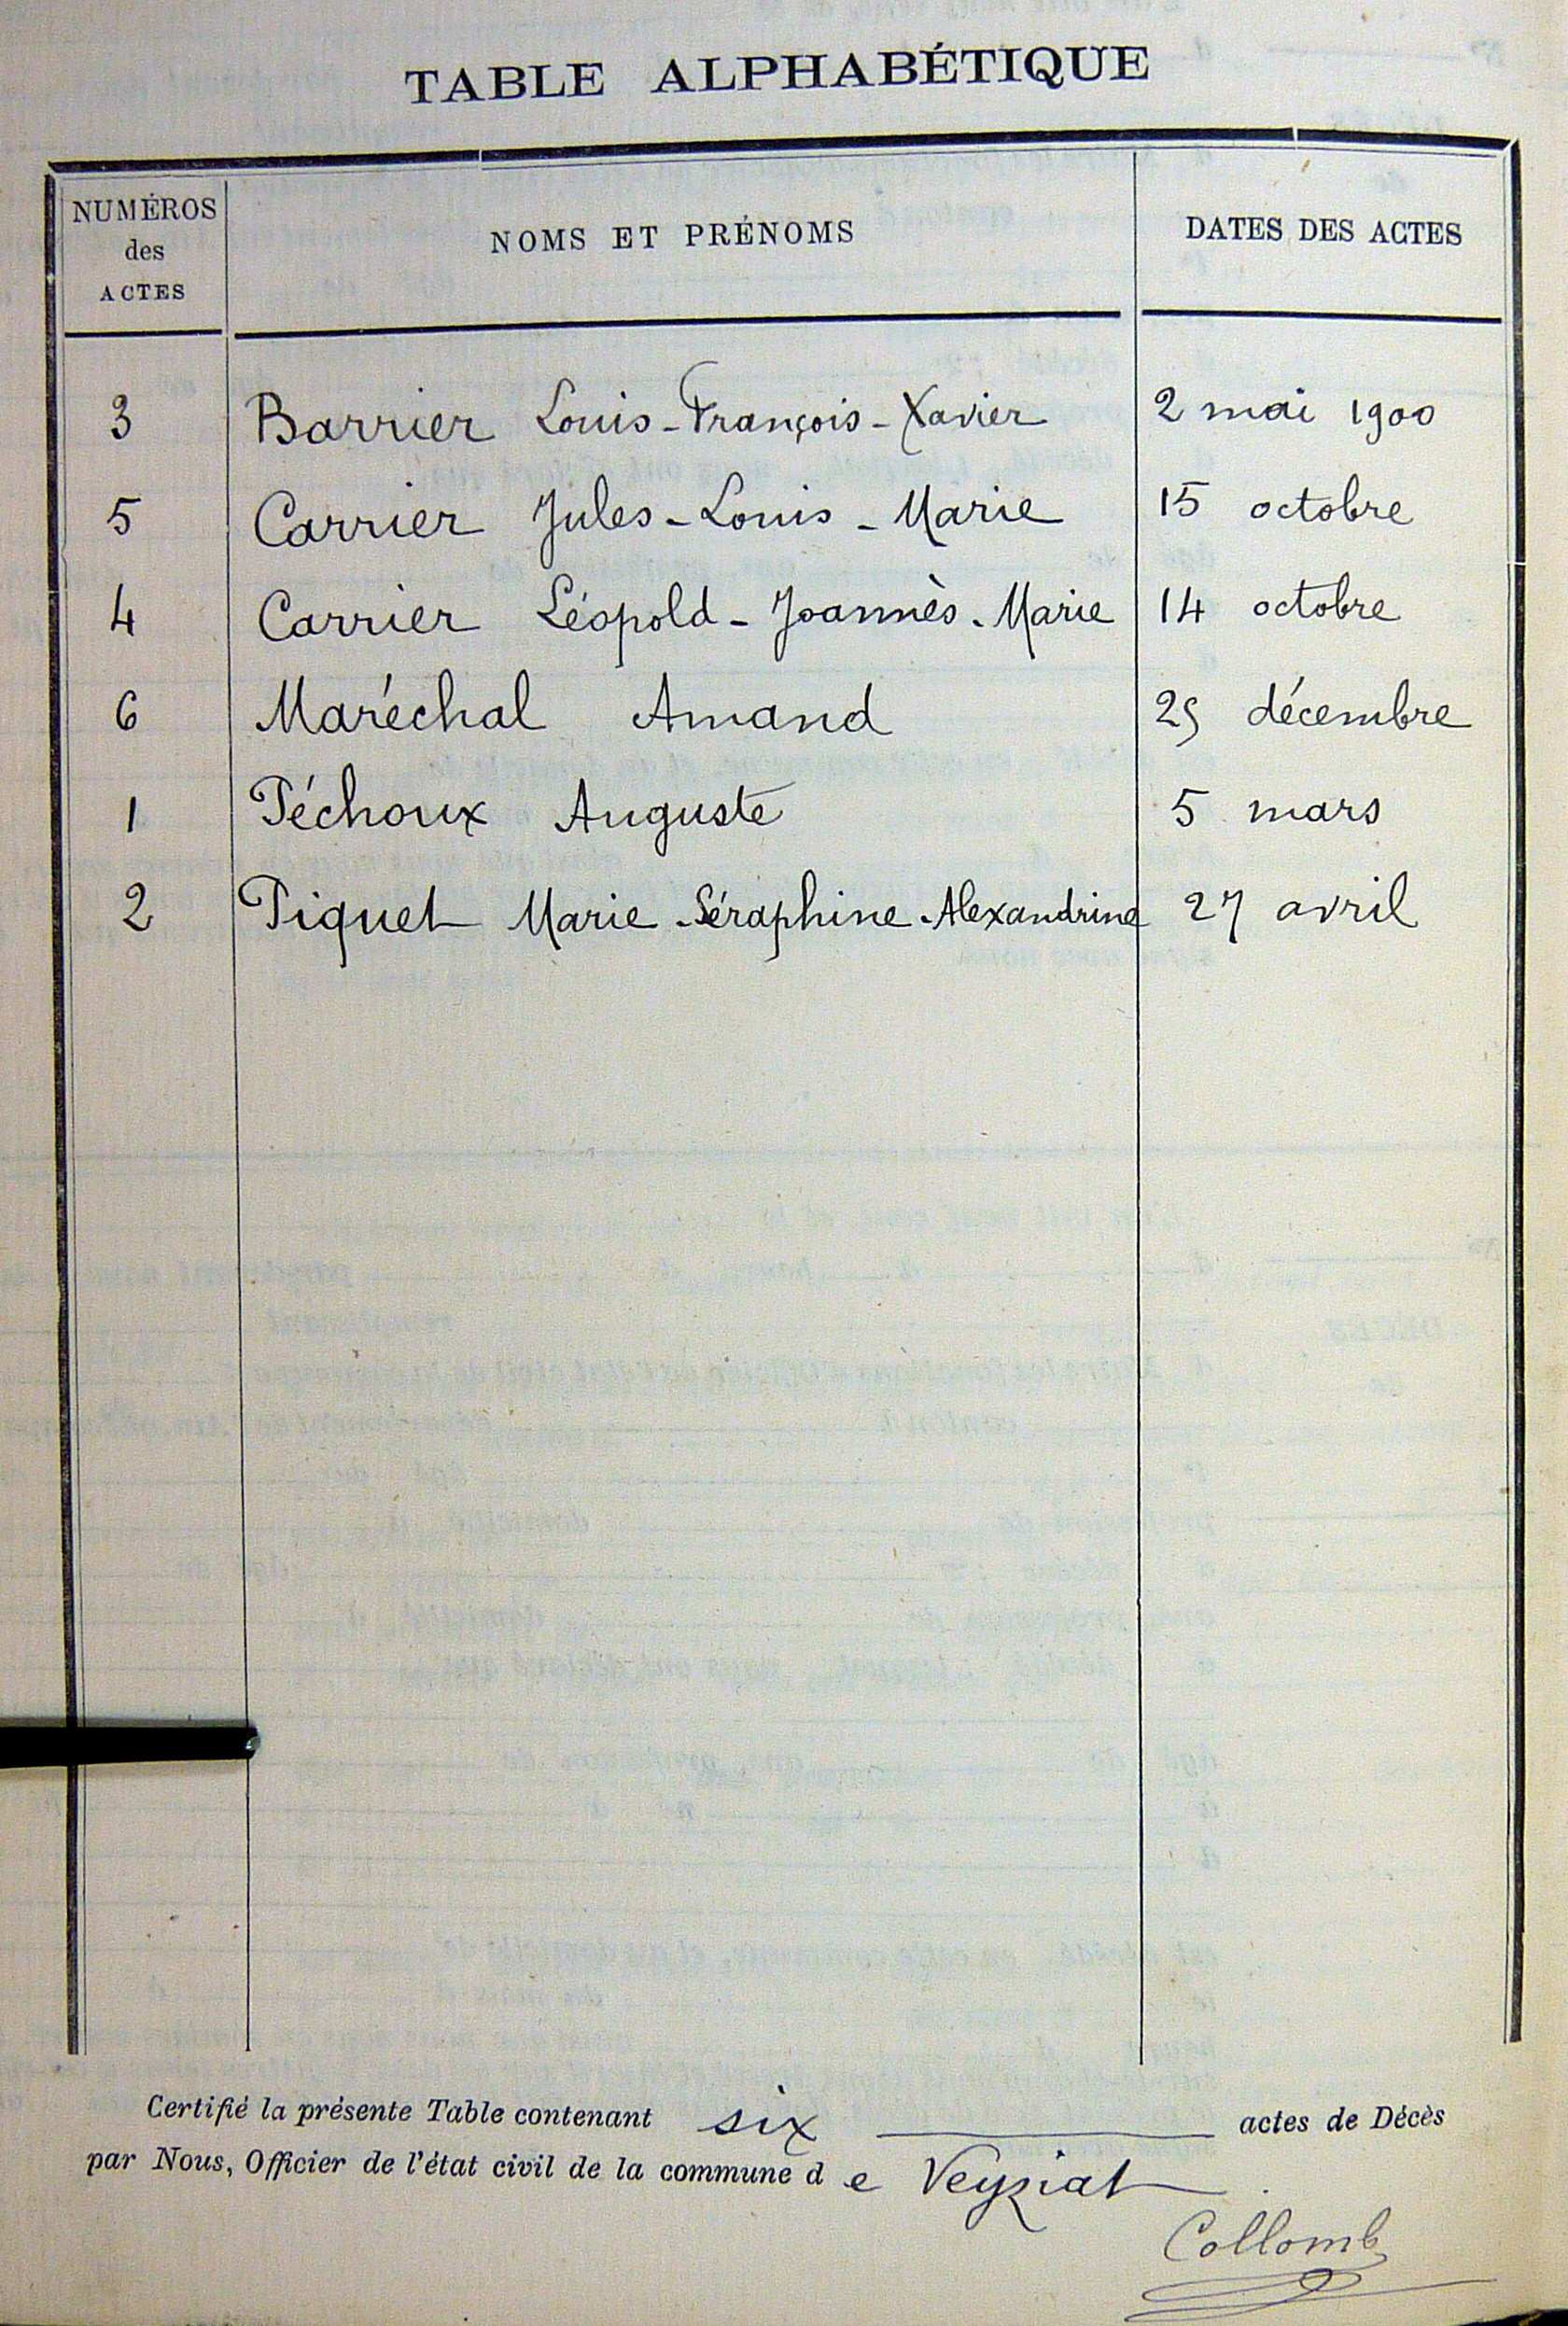 TABLE ALPHABÉTIQUE
NUMÉROS des ACTES NOMS ET PRÉNOMS DATES DES ACTES
3 Barrier Louis-François-Xavier 2 mai 1900
5 Carrier Jules-Louis-Marie 15 octobre
4 Carrier Léopold-Joannès-Marie 14 octobre
6 Maréchal Amand 25 décembre
1 Péchoux Auguste 5 mars
2 Piquet Marie-Séraphine-Alexandrine 27 avril
Certifié la présente Table contenant six actes de Décès
par Nous, Officier de l'état civil de la commune de Veyziat
Collomb